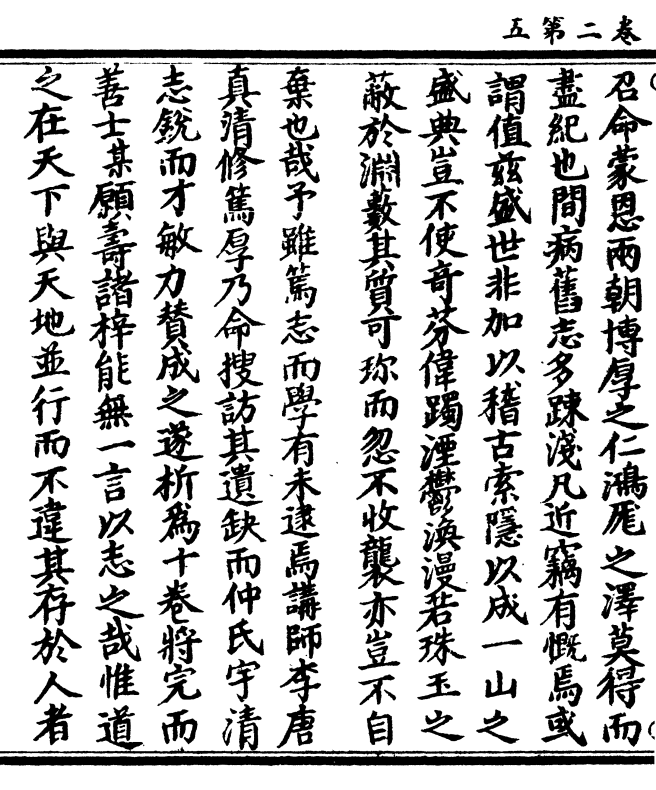 五第二卷
召命蒙恩兩朝博厚之仁鴻厖之澤莫得而
盡紀也間病舊志多踈淺凡近竊有慨焉或
謂值茲盛世非加以稽古索隱以成一山之
盛典豈不使奇芬偉躅湮鬱渙漫若珠玉之
蔽於淵藪其質可珎而忽不收襲亦豈不自
棄也哉予雖篤志而學有未逮焉講師李唐
真清修篤厚乃命搜訪其遺缺而仲氏宇清
志銳而才敏力贊成之遂析為十卷將完而
善士某願壽諸梓能無一言以志之哉惟道
之在天下與天地並行而不違其存於人者